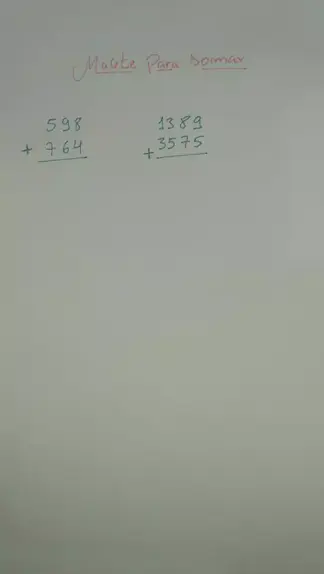 Macete Para Somar
598
+ 764
1389
+ 3575